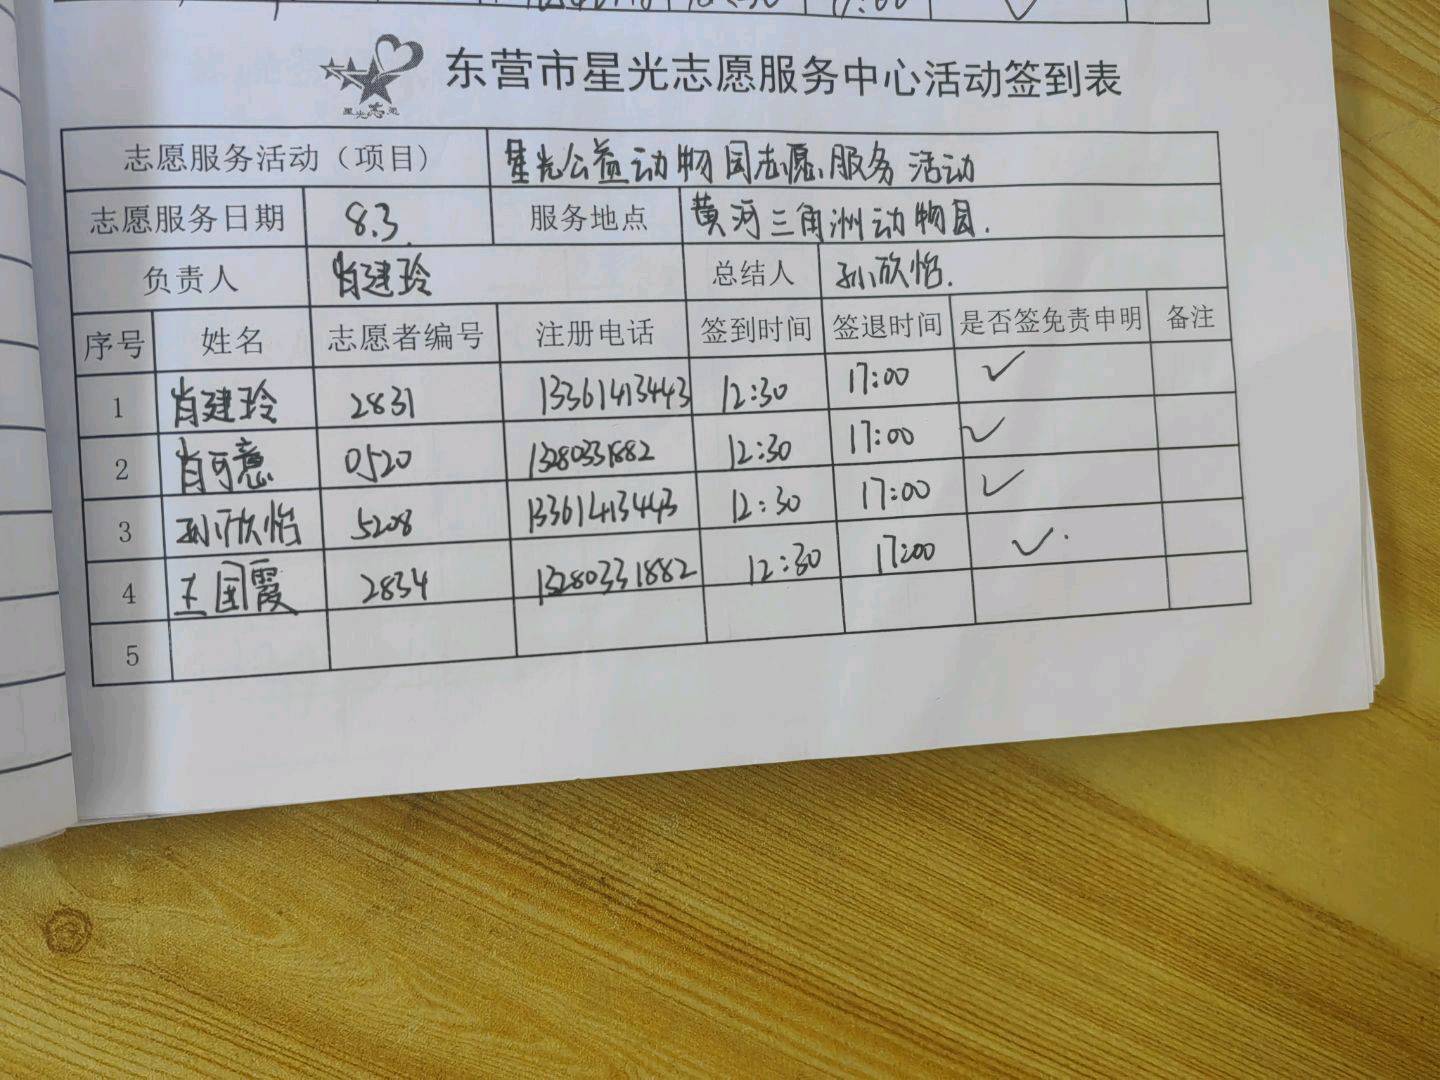 17:00
星光志愿
东营市星光志愿服务中心活动签到表
志愿服务活动（项目） 星光公益动物园志愿服务活动
志愿服务日期 8.3. 服务地点 黄河三角洲动物园.
负责人 肖建玲 总结人 孙欣怡.
序号 姓名 志愿者编号 注册电话 签到时间 签退时间 是否签免责申明 备注
1 肖建玲 2831 13361413443 12:30 17:00 ✓
2 肖可意 0520 13280331882 12:30 17:00 ✓
3 孙欣怡 5208 13361413443 12:30 17:00 ✓
4 王国霞 2834 13280331882 12:30 17:00 ✓.
5